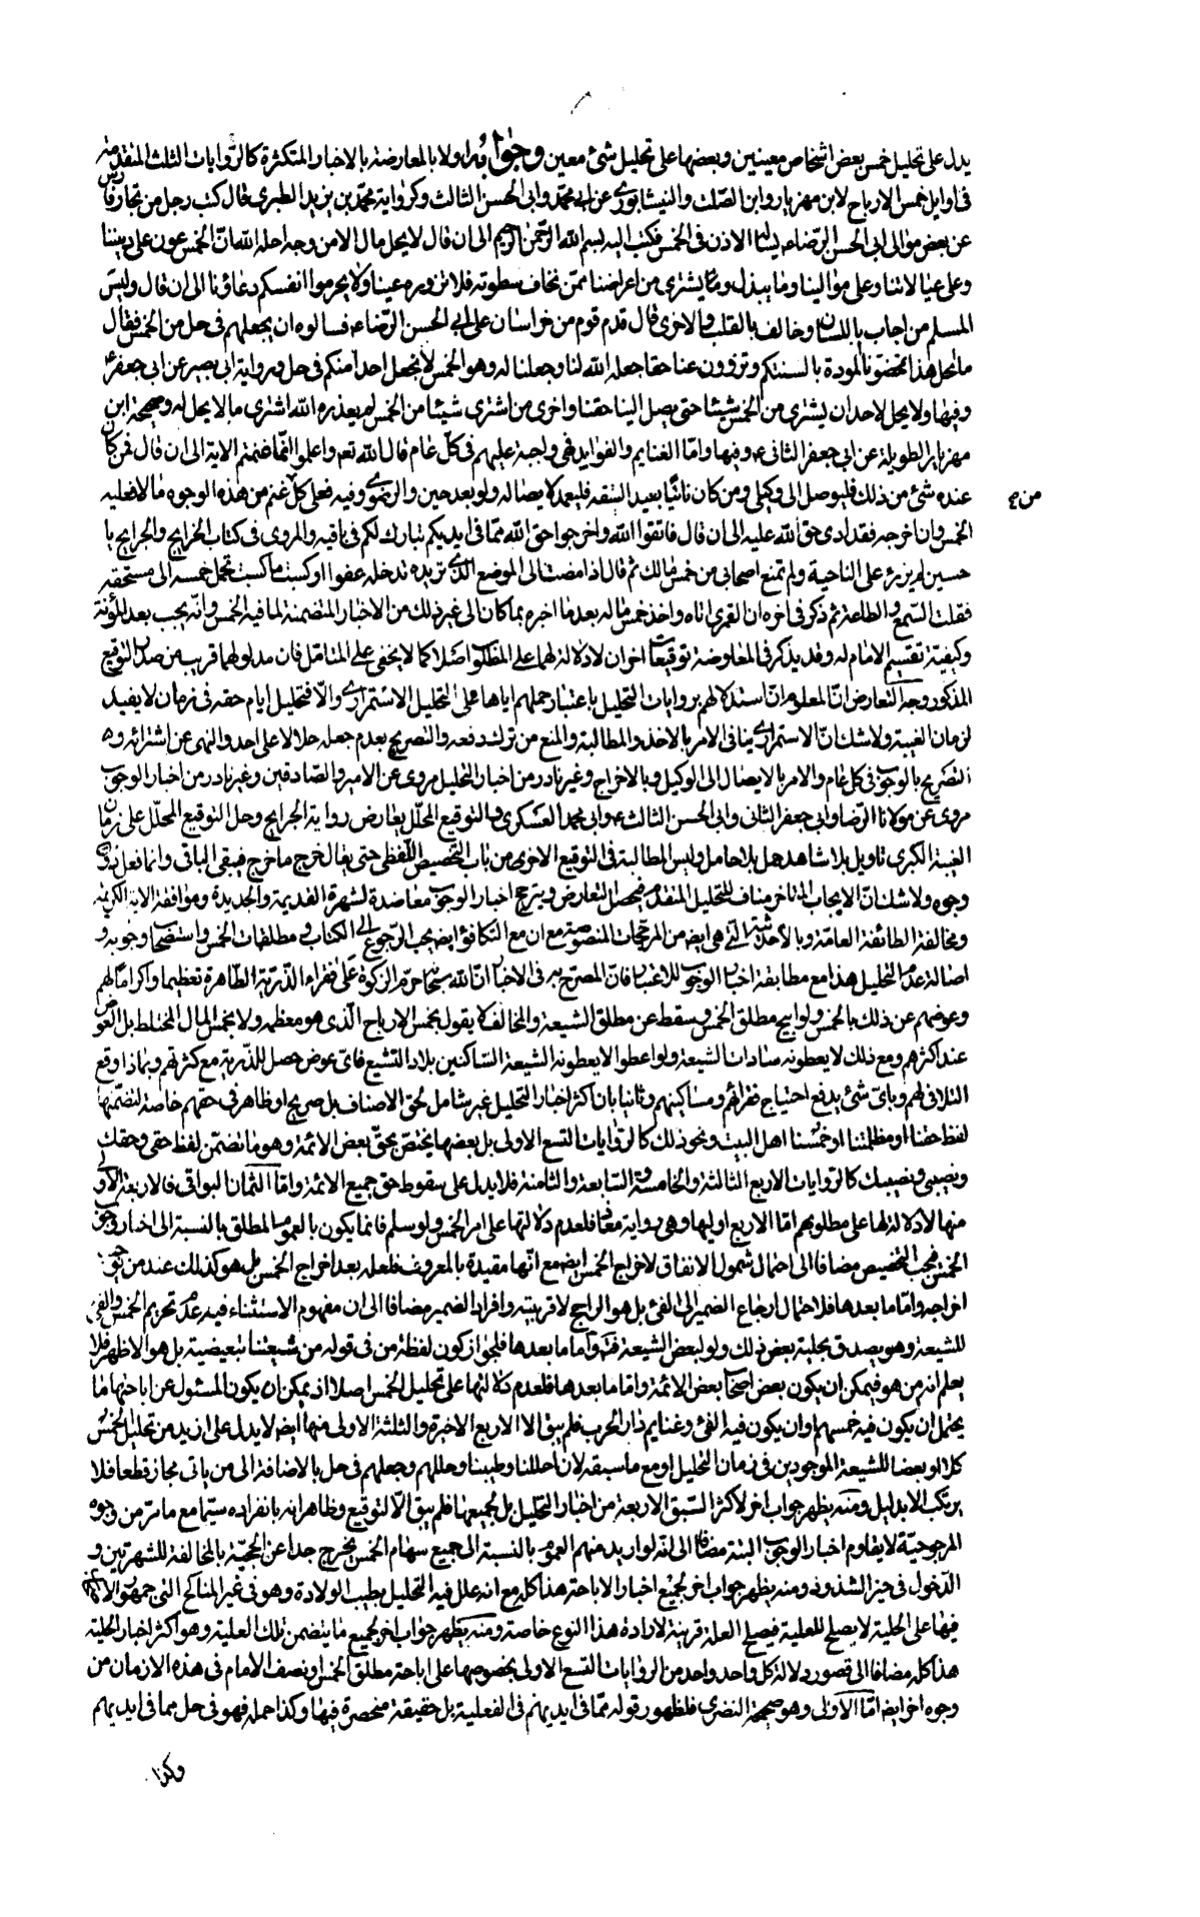 يدل على تحليل خمس بعض اشخاص معينين وبعضها على تحليل شئ معين وجوابه اولا بالمعارضة بالاخبار المتكثرة كالروايات الثلث المتقدمة
فى اوايل خمس الارباح لابن مهزيار وابن الصلت والنيشابورى عن ابى محمد وابى الحسن الثالث وكرواية محمد بن يزيد الطبرى قال كتب رجل من تجار فارس
عن بعض موالى ابى الحسن الرضاء يسئله الاذن فى الخمس فكتب اليه بسم الله الرحمن الرحيم الى ان قال لا يحل مال الا من وجه احله الله ان الخمس عون على ديننا
وعلى عيالاتنا وعلى موالينا وما نبذل وما يشترى من اعراضنا ممن نخاف سطوته فلا تزووه عنا ولا يحرموا انفسكم دعاؤنا الى ان قال وليس
المسلم من اجاب باللسان وخالف بالقلب والاخرى قال قدم قوم من خراسان على ابى الحسن الرضاء فسالوه ان يجعلهم فى حل من الخمس فقال
ما امحل هذا تمحضونا المودة بالسنتكم وتزوون عنا حقا جعله الله لنا وجعلنا له وهو الخمس لا نجعل احدا منكم فى حل ورواية ابى بصير عن ابى جعفر ع
وفيها ولا يحل لاحد ان يشترى من الخمس شيئا حتى يصل الينا حقنا واخرى من اشترى شيئا من الخمس لم يعذره الله اشترى ما لا يحل له وصحيحة ابن
مهزيار الطويلة عن ابى جعفر الثانى ع وفيها واما الغنايم والفوايد فهى واجبة عليهم فى كل عام قال الله تعم واعلموا انما غنمتم الاية الى ان قال فمن كان
عنده شئ من ذلك فليوصل الى وكيلى ومن كان نائيا بعيد الشقة فليعمد لايصاله ولو بعد حين والرضوى وفيه فعلى كل غنم من هذه الوجوه مالا فعليه
من ع
الخمس وان اخرجه فقد ادى حق الله عليه الى ان قال فاتقوا الله واخرجوا حق الله مما فى ايديكم يتبارك لكم فى باقيه والمروى فى كتاب الخرايج والجرايح يا
حسين لم يزرى على الناحية ولم تمنع اصحابى من خمس مالك ثم قال اذا مضت الى الموضع الذى تريده تدخله عفوا او كسبت ما كسبت تحمل خمسه الى مستحقه
فقلت السمع والطاعة ثم ذكر فى اخره ان العمرى اتاه واخذ خمس ماله بعد ما اخبره بما كان الى غير ذلك من الاخبار المتضمنة لما فيه الخمس وانه يجب بعد المؤنة
وكيفية تقسيم الامام له وقد يذكر فى المعاوضة توقيعات اخران لا دلالة لهما على المطلوب اصلا كما لا يخفى على المتامل فان مدلولهما قريب من صدر التوقيع
المذكور وجه التعارض ان المعلوم ان استدلالهم بروايات التحليل باعتبار حملهم اياها على التحليل الاستمرارى والا فتحليل ايام حقه فى زمان لا يفيد
لزمان الغيبة ولا شك ان الاستمرارى ينافى الامر بالاخذ والمطالبة والمنع من ترك دفعه والتصريح بعدم جعله حلالا على احد والنهى عن اشترائه و
التصريح بالوجوب فى كل عام والامر بالايصال الى الوكيل وبالاخراج وغير نادر من اخبار التحليل مروى عن الامير والصادقين وغير نادر من اخبار الوجوب
مروى عن مولانا الرضا وابى جعفر الثانى وابى الحسن الثالث ع وابى محمد العسكرى وبالتوقيع المحلل يعارض رواية الجرايح وحمل التوقيع المحلل على زمان
الغيبة الكبرى تاويل بلا شاهد هل بلا حامل وليس المطالبة فى التوقيع الاخرى من باب التخصيص اللفظى حتى يقال خرج ما خرج فيبقى الباقى وانما نعارضه
وجوه ولا شك ان الايجاب المتاخر مناف للتحليل المتقدم فيحصل التعارض ويترجح اخبار الوجوب معاضدة لشهرة القديمة والجديدة وموافقة الاية الكريمة
ومخالفة الطائفة العامة وبالاحدثية التى هى ايضا من المرجحات المنصوصة مع ان مع التكافؤ ايضا يجب الرجوع الى الكتاب ومطلقات الخمس واستصحاب وجوبه و
اصالة عدم التحليل هذا مع مطابقة اخبار الوجوب للاعتبار فان المصرح به فى الاخبار ان الله سبحانه حرم الزكوة على فقراء الذرية الطاهرة تعظيما واكراما لهم
وعوضهم عن ذلك بالخمس ولو ابيح مطلق الخمس ويسقط عن مطلق الشيعة والمخالف لا يقول بخمس الارباح الذى هو معظمه ولا بخمس المال المختلط بل الغوص
عند اكثرهم ومع ذلك لا يعطونه سادات الشيعة ولو اعطوا لا يعطونه الشيعة الساكنين بلاد التشيع فاى عوض حصل للذرية مع كثرتهم وبماذا وقع
التلافى لهم وباى شئ يدفع احتياج فقرائهم ومساكينهم وثانيا بان اكثر اخبار التحليل غير شامل لحق الاصناف بل صريح او ظاهر فى حقهم خاصة لتضمنها
لفظ حقنا او مظلمتنا او خمسنا اهل البيت ونحو ذلك كالروايات التسع الاولى بل بعضها يختص بحق بعض الائمة وهو ما تضمن لفظ حقى وحقك
ونصيبى ونصيبك كالروايات الاربع الثالثة والخامسة والسابعة والثامنة فلا يدل على سقوط حق جميع الائمة واما الثمان البواقى فالاربعة الاولى
منها لا دلالة لها على مطلوبهم اما الاربع اوليها وهى رواية معاذ فلعدم دلالتها على امر الخمس ولو سلم فانما يكون بالعموم المطلق بالنسبة الى اخبار وجوب
الخمس فيجب التخصيص مضافا الى احتمال شمول الانفاق لاخراج الخمس ايضا مع انها مقيدة بالمعروف فلعله بعد اخراج الخمس بل هو كذلك عند من يوجب
اخراجه واما ما بعدها فلاحتمال ارجاع الضمير الى الفئ بل هو الراجح لاقربيته وافراد الضمير مضافا الى ان مفهوم الاستثناء فيه عدم تحريم الخمس والفئ
للشيعة وهو يصدق بحلية بعض ذلك ولو لبعض الشيعة واما ما بعدها فلجواز كون لفظة من فى قوله من شيعتنا تبعيضية بل هو الاظهر فلا
يعلم انه من هو فيمكن ان يكون بعض اصحاب بعض الائمة واما ما بعدها فلعدم دلالتها على تحليل الخمس اصلا اذ يمكن ان يكون المسئول عن اباحتها ما
يحتمل ان يكون فيه خمسهم او ان يكون فيه الفئ وغنايم دار الحرب فلم يبق الا الاربع الاخيرة والثلثة الاولى منها ايضا لا يدل على ازيد من تحليل الخمس
كلا او بعضا للشيعة الموجودين فى زمان التحليل او مع ما سبقه لان احللنا وطيبنا وحللهم وجعلهم فى حل بالاضافة الى من ياتى مجاز قطعا فلا
يرتكب الا بدليل ومنه يظهر جواب اخر لاكثر السبق الاربعة من اخبار التحليل بل لجميعها فلم يبق الا التوقيع وظاهر انه بانفراده سيما مع ما مر من وجوه
المرجوحية لا يقاوم اخبار الوجوب البتة مضافا الى انه لو اريد منهم العموم بالنسبة الى جميع سهام الخمس يخرج جدا عن الحجية بالمخالفة للشهرتين و
الدخول فى حيز الشذوذ ومنه يظهر جواب اخر لجميع اخبار الاباحة هذا كله مع انه علل فيه التحليل بطيب الولادة وهو فى غير المناكح التى جمهور الاصحاب
فيها على الحلية لا يصلح للعلية فيصلح العلة قرينة لارادة هذا النوع خاصة ومنه يظهر جواب اخر لجميع ما يتضمن تلك العلية وهو اكثر اخبار الحلية
هذا كله مضافا الى قصور دلالة كل واحد واحد من الروايات التسع الاولى بخصوصها على اباحة مطلق الخمس او نصف الامام فى هذه الازمان من
وجوه اخر ايضا اما الاولى وهو صحيحة النضرى فلظهور قوله مما فى ايديهم فى الفعلية بل حقيقة منحصرة فيها وكذا احمله فهو فى حل مما فى ايديهم
وكذا